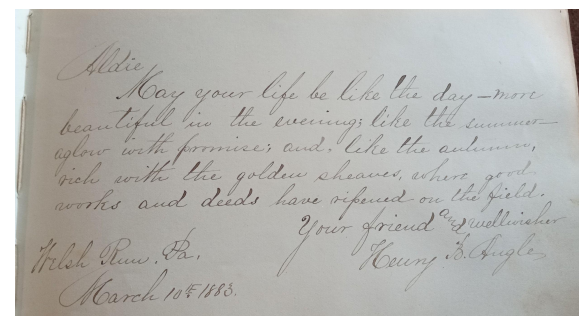 Addie,
May your life be like the day – more
beautiful in the evening; like the summer –
aglow with promise; and, like the autumn,
rich with the golden sheaves, where good
works and deeds have ripened on the field.
Your friend and wellwisher
Welsh Run, Pa. Henry B. Angle
March 10th 1883.